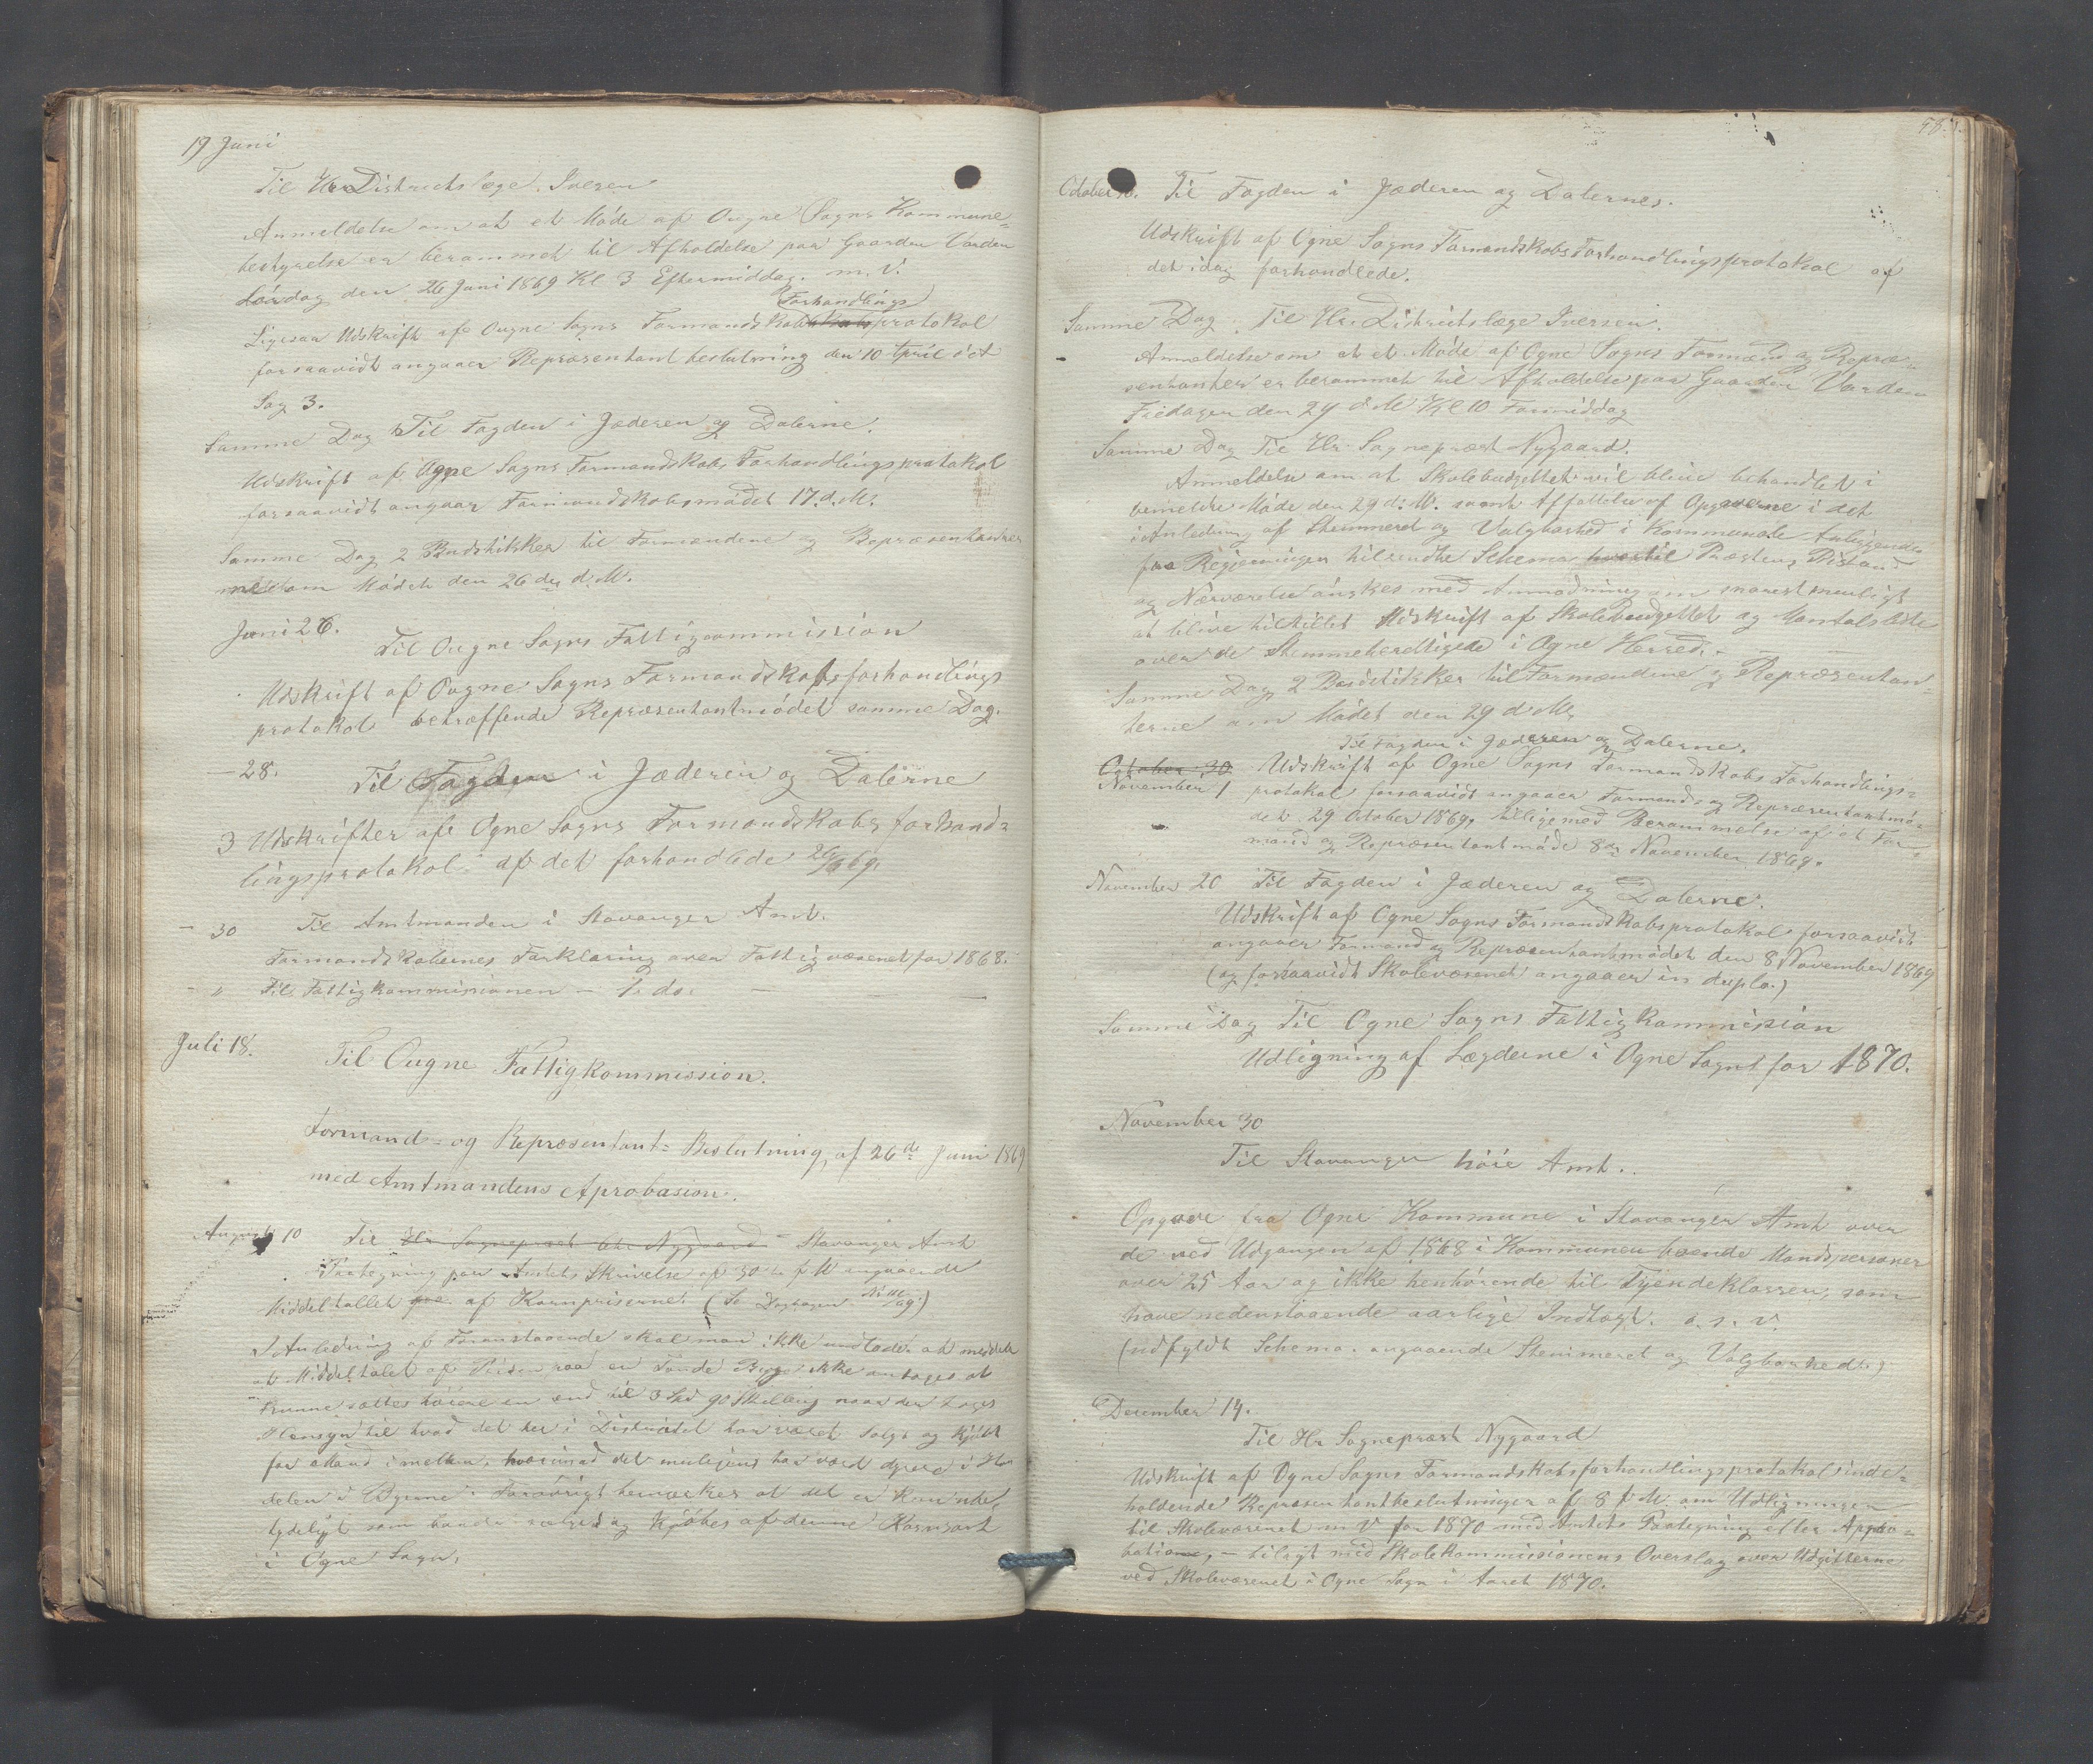 19 Juni
Til Hr Districtslæge Iversen
Anmeldelse om at et Möde af Ougne Sogns Kommune-
bestyrelse er berammet til Afholdelse paa Gaarden Varden
Lördag den 26 Juni 1869 Kl 3 Eftermiddag. m. v.
Forhandlings
Ligesaa Udskrift af Ougne Sogns Formandskabs protokol
forsaavidt angaaer Repræsentant beslutning den 10 April d. A
Sag 3.
Samme Dag Til Fogden i Jæderen og Dalerne.
Udskrift af Ogne Sogns Formandskabs Forhandlingsprotokol
forsaavidt angaar Formandskabsmödet 17. d. M.
Samme Dag 2 Budstikker til Formændene og Repræsentanter
ne om Mödet den 26de d. M.
Juni 26.
Til Ougne Sogns Fattigcommission
Udskrift af Ougne Sogns Formandskabsforhandlings
protokol betræffende Repræsentantmödet samme Dag.
— 28.
Til Fogden i Jæderen og Dalerne
3 Udskrifter af Ogne Sogns Formandskabs forhand-
lingsprotokol af det forhandlede 26/6 69.
- 30 Til Amtmanden i Stavanger Amt.
Formandskabernes Forklaring over Fattigvæsenet for 1868.
- " Til Fattigkommissionen — 1. do. —
Juli 18.
Til Ougne Fattigkommission.
Formand- og Repræsentant- Beslutning, af 26de Juni 1869
med Amtmandens Aprobasion.
August 10 Til Hr Sogneprest Chr Nygaard - Stavanger Amt
Paategning paa Amtets Skrivelse af 30te f M angaaende
Middeltallet paa af Kornpriserne. (Se Dagbogen
I Anledning af Foranstaaende skal man ikke undlade at meddele
at Middeltalet af Prisen paa en Tønde Byg ikke antages at
kunne sættes höiere en end til 3 Spd 90 Skilling naar der tages
Hensyn til hvad det her i Districtet har været solgt og kjöbt
for ibland imellem, hvorimod det muligens har været dyrere i Han
delen i Byerne. Forövrigt bemærkes at det er kun ube,
tydeligt som bande sælges og Kjöbes af denne Kornsort
i Ogne Sogn.
October Til Fogden i Jæderen og Dalernes.
Udskrift af Ogne Sogns Formandskabs Forhandlingsprotokol af
det idag forhandlede.
Samme Dag. Til Hr. Districtslæge Iversen.
Anmeldelse om at et Möde af Ogne Sogns Formænd og Repræ-
sentanter er berammet til Afholdelse paa Gaarden Varden
Fredagen den 29 d. M. Kl 10 Formiddag
Samme Dag Til Hr. Sogneprest Nygaard.
Anmeldelse om at Skolebudgettet vil blive behandlet i
bemeldte Möde den 29 d: M. samt Affattelse af Opgaverne i det
i Anledning af Stemmeret og Valgbarhed i Kommunale Anliggender
fra Regjeringen tilsendte Schema hvortil Præstens Bistand
og Nærværelse önskes med Anmodning om snarest muligst
at blive tilstillet Udskrift af Skolebudgettet og Mantalsliste
over de Stemmeberettigede i Ogne Herred. —
Samme Dag 2 Budstikker til Formændene og Repræsentan-
terne om Mödet den 29 d. M.
Til Fogden i Jæderen og Dalerne.
October 30 Udskrift af Ogne Sogns Formandskabs Forhandlings-
November 1 protokol forsaavidt angaaer Formands og Repræsentantmö-
det 29 October 1869, tilligemed Berammelse af et For-
mand og Repræsentantmöde 8de November 1869.
November 20 Til Fogden i Jæderen og Dalerne.
Udskrift af Ogne Sogns Formandskabsprotokol forsaavidt
angaaer Formand og Repræsentantmödet den 8 November 1869
(og forsaavidt Skolevæsenet angaaer in duplo.)
Samme Dag Til Ogne Sogns Fattigkommission
Udligning af Lægderne i Ogne Sogn for 1870.
November 30
Til Stavanger höie Amt.
Opgave fra Ogne Kommune i Stavanger Amt over
de ved Udgangen af 1868 i Kommunen boende Mandspersoner
over 25 Aar og ikke henhörende til Tjendeklassen, som
have nedenstaaende aarlige Indtægt. o. s. v.
(udfyldt Schema angaaende Stemmeret og Valgbarhed.)
December 14.
Til Hr Sogneprest Nygaard
Udskrift af Ogne Sogns Formandskabsforhandlingsprotokol inde-
holdende Repræsentantbeslutninger af 8 f. M. om Udligningen
til Skolevæsenet m V for 1870 med Amtets Paategning efter Appro-
bation, — tilligt med Skolekommissionens Overslag over Udgifterne
ved Skolevæsenet i Ogne Sogn i Aaret 1870.